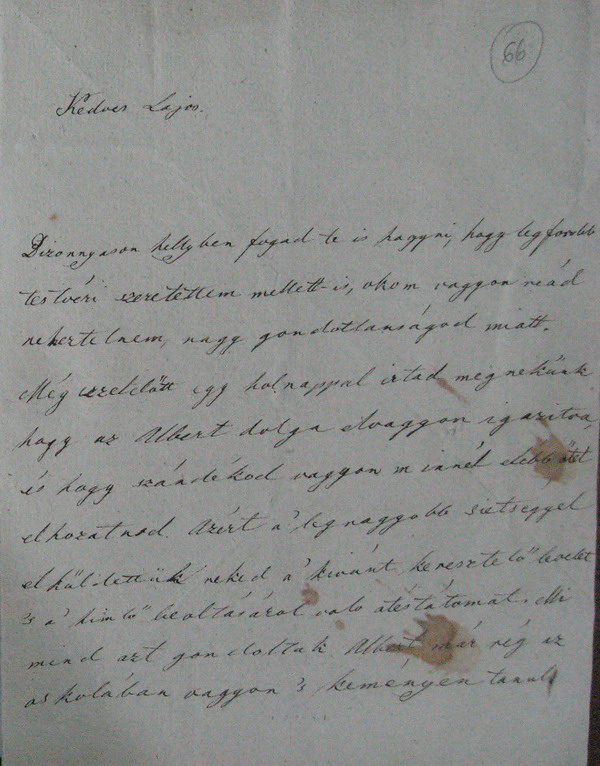 66
Kedves Lajos.
Bizonnyason hellyben fogod te is hagyni, hogy legforobb
testvéri szeretettem mellett is, okom vaggon reád
nehertelnem, nagy gondotlanságod miatt.
Még ezelőtt egy holnappal irtad meg nekünk
hogy az Albert dolga elvaggon igazitva,
és hogy szándékod vaggon minnél elébb őtet
elhozatnod. Azért a' legnaggobb sietséggel
elküldettük neked a' kivánt keresztelő levelet
's a' himlő beoltásáról valo atestátomat. Mi
mind azt gondoltuk Albert már rég az
oskolában vaggon 's keményen tanul